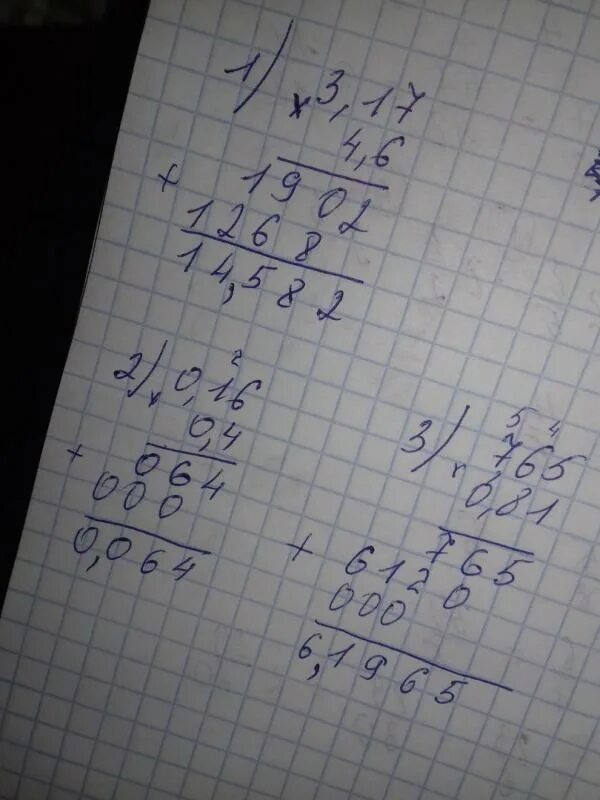 1) × 3,17
4,6
+ 1902
1268
14,582
2) × 0,16
2
0,4
+ 064
000
0,064
5 4
3) × 765
0,81
+ 765
6120
000
6,1965